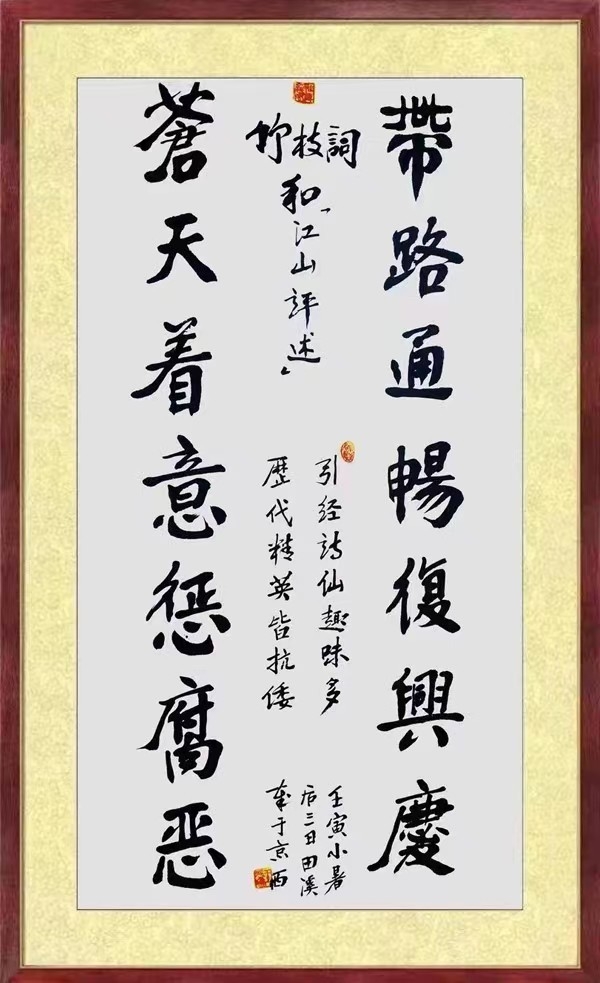 帶路通暢復興慶
竹枝詞
和「江山評述」
引经诗仙趣味多
歷代精英皆抗倭
壬寅小暑
后三日田溪
于京西
蒼天着意惩腐恶